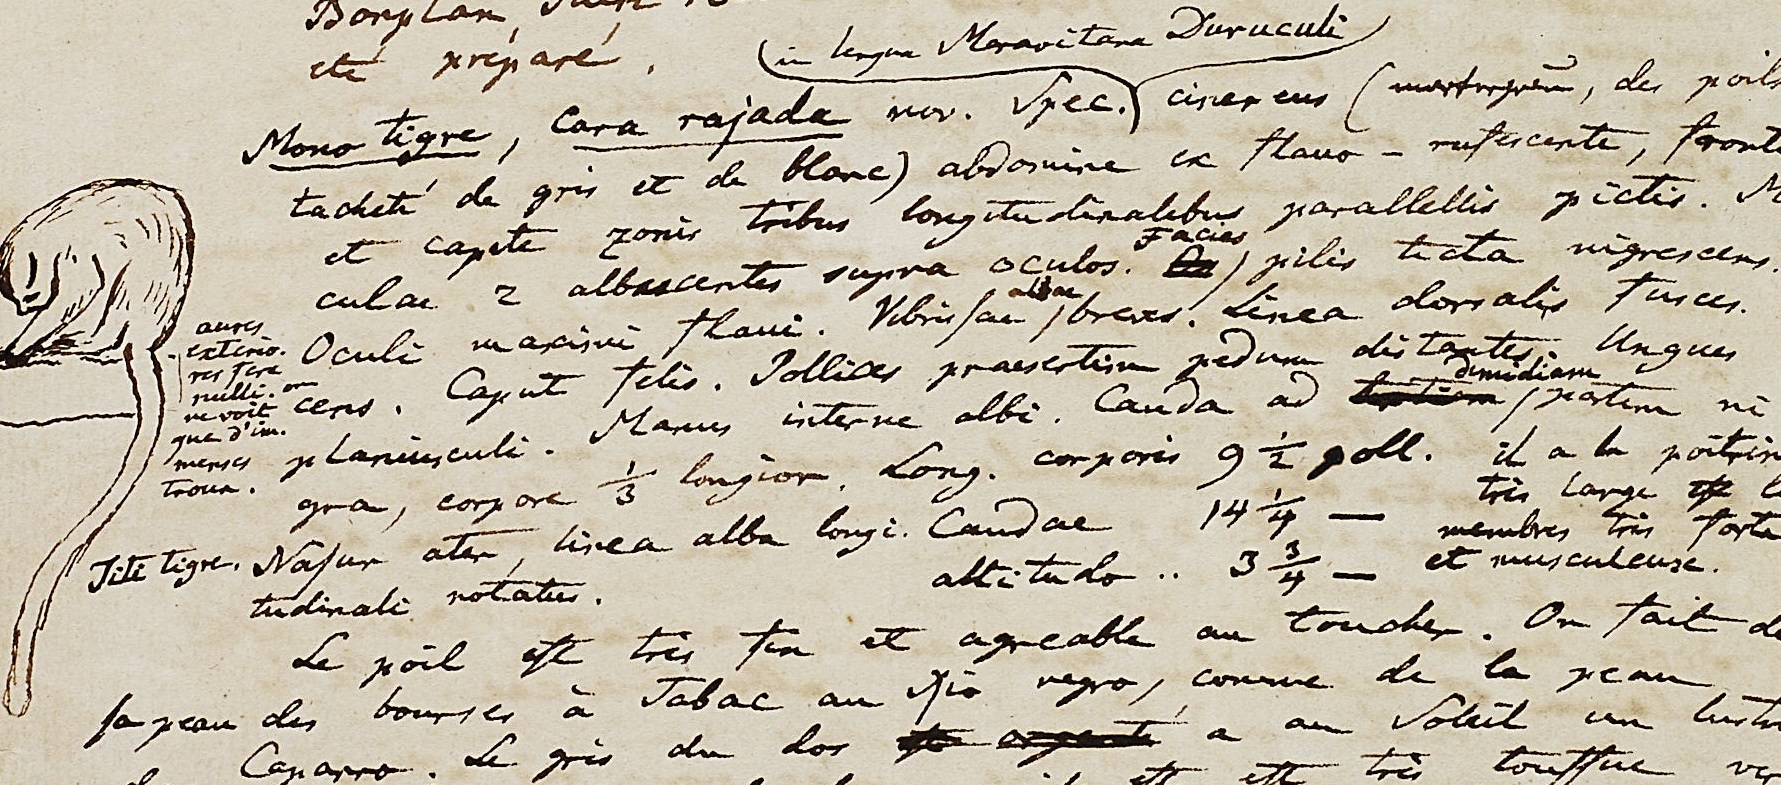 été préparé.
(in lengua Maravitana Duruculi)
Mono tigre, Cara rajada nov. Spec. cinereus (, des poils
tacheté de gris et de blanc) abdomine ex flavo-rufescente, fronte
et capite zonis tribus longitudinalibus parallellis pictis. Ma
culae 2 albescentes supra oculos. Facies pilis tecta nigrescens.
Oculi maximi flavi. Vibrissae albae breves. Linea dorsalis fusces.
cens. Caput felis. Pollices praesertim pedum distantes. Ungues
planiusculi. Manus interne albi. Cauda ad dimidiam partem ni
gra, corpore 1/3 longior. Long. corporis 9 1/2 poll.
Caudae 14 1/4 —
altitudo .. 3 3/4 —
il a la poitrine
très large
membres très forts
et musculeux.
Nasus ater, linea alba longi.
tudinali notatus.
aures
exterio.
res fere
nulli. on
ne voit
que d'im.
menses
trous.
Titi tigre.
Le poil est très fin et agreable au toucher. On fait de
sa peau des bourses à Tabac au Rio negro, comme de la peau
Caparro. Le gris du dos a au Soleil un lustre
est très touffue